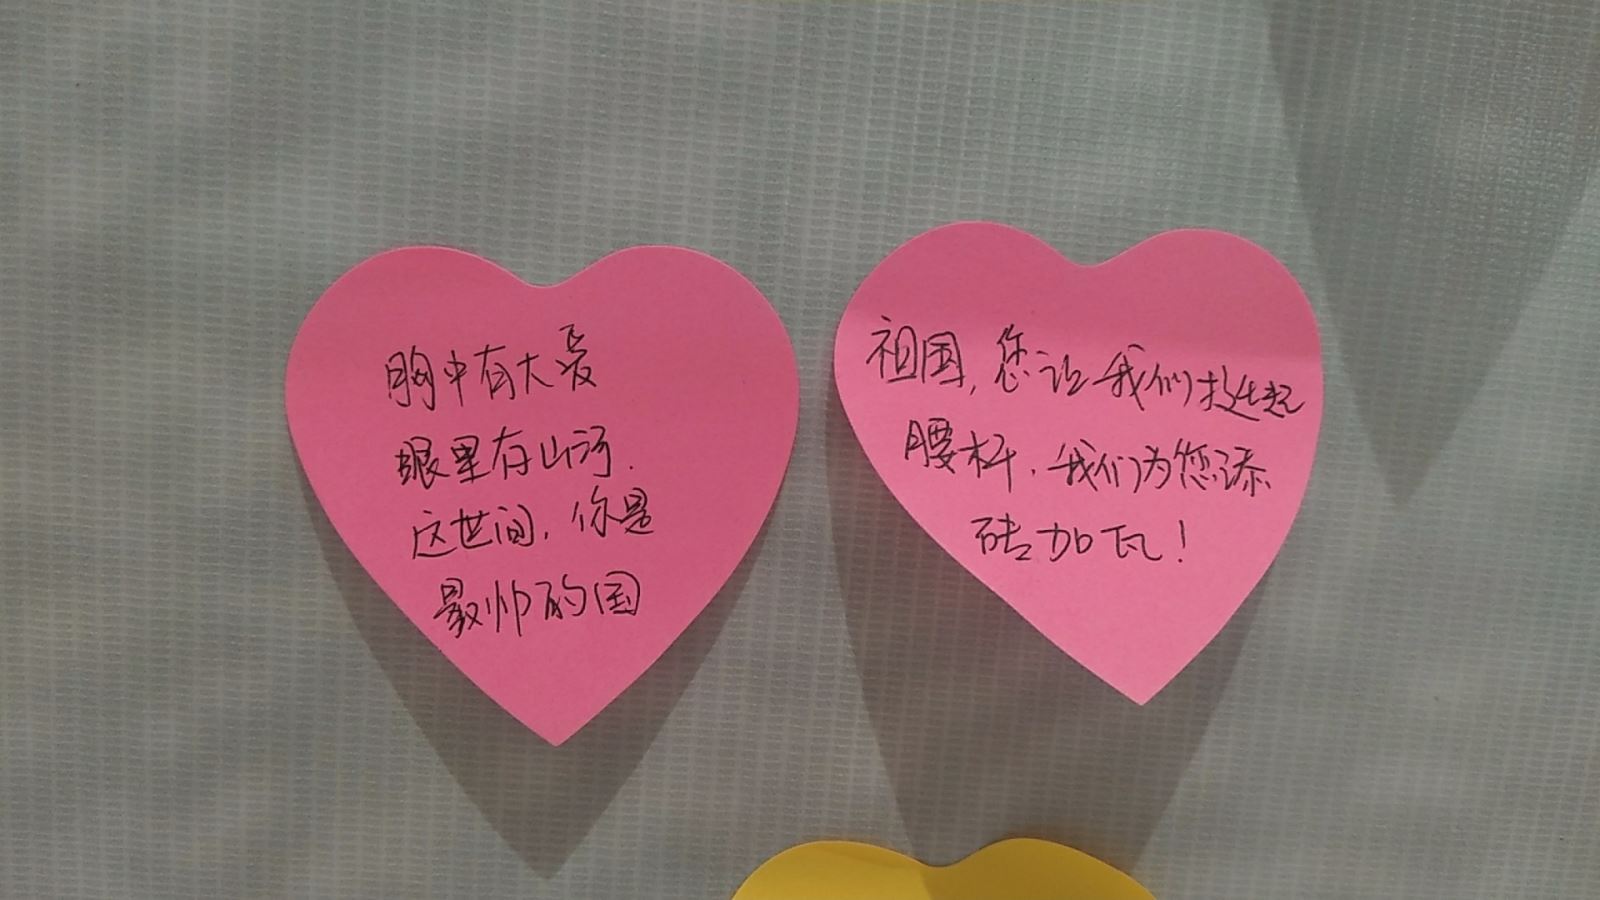 胸中有大爱
眼里有山河.
这世间，你是
最帅的国
祖国，您让我们挺起
腰杆，我们为您添
砖加瓦！